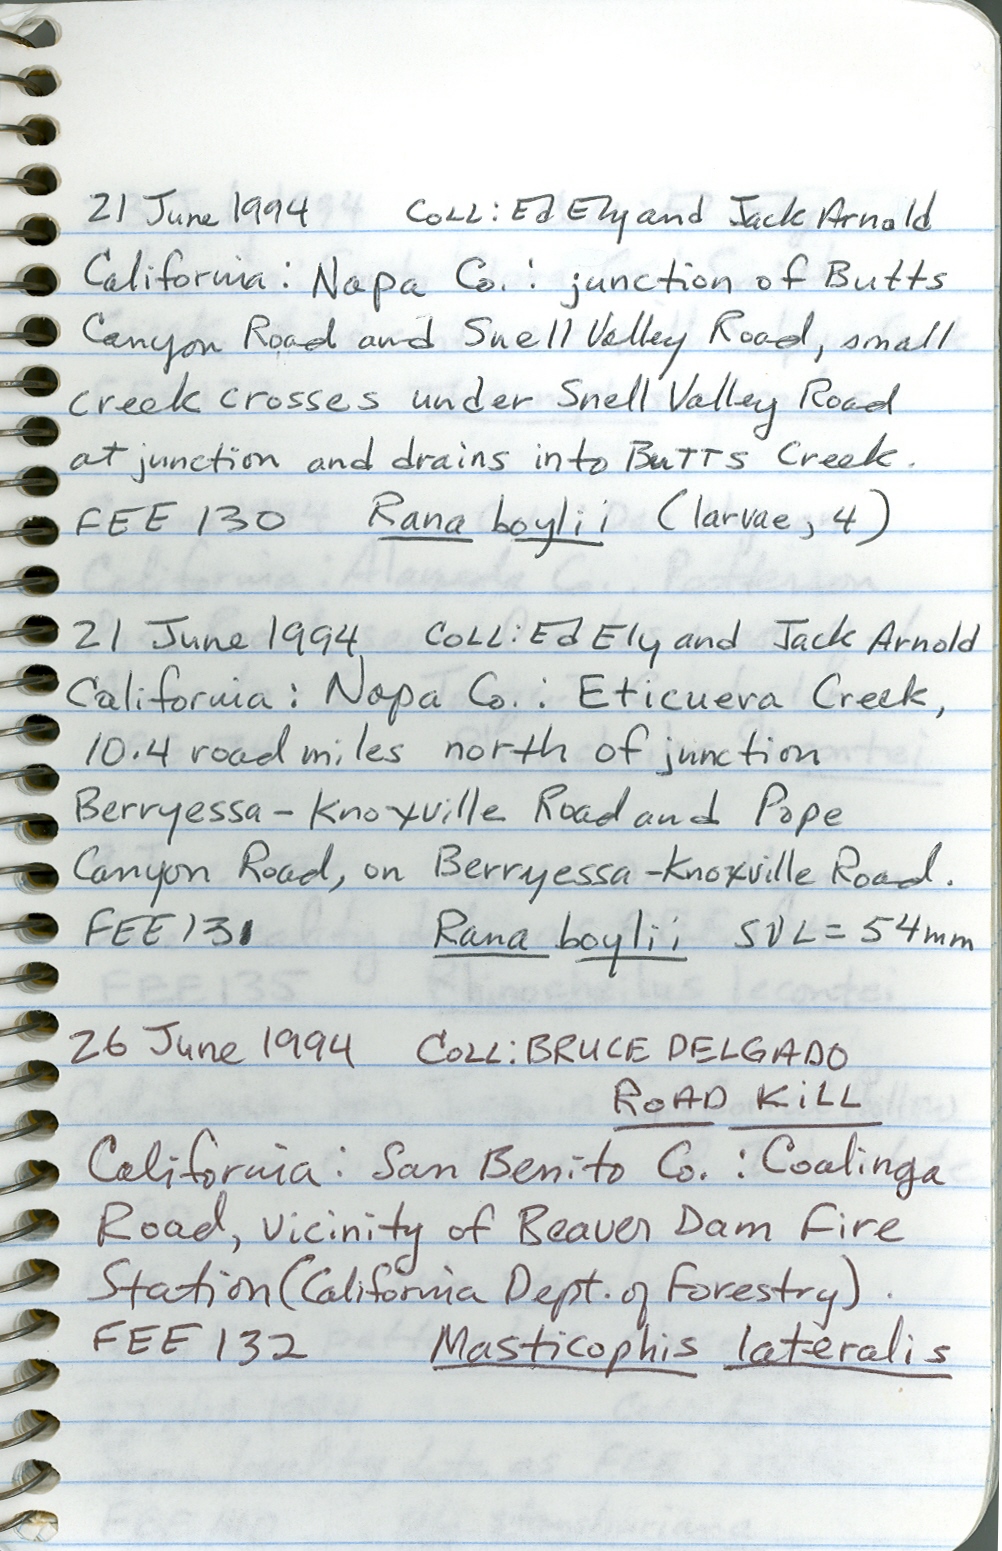 21 June 1994 COLL: Ed Ely and Jack Arnold
California: Napa Co.: junction of Butts
Canyon Road and Snell Valley Road, small
creek crosses under Snell Valley Road
at junction and drains into Butts Creek.
FEE 130 Rana boylii (larvae, 4)
21 June 1994 COLL: Ed Ely and Jack Arnold
California: Napa Co.: Eticuera Creek,
10.4 road miles north of junction
Berryessa-Knoxville Road and Pope
Canyon Road, on Berryessa-Knoxville Road.
FEE 131 Rana boylii SVL = 54mm
26 June 1994 COLL: BRUCE DELGADO
ROAD KILL
California: San Benito Co.: Coalinga
Road, vicinity of Beaver Dam Fire
Station (California Dept. of Forestry).
FEE 132 Masticophis lateralis